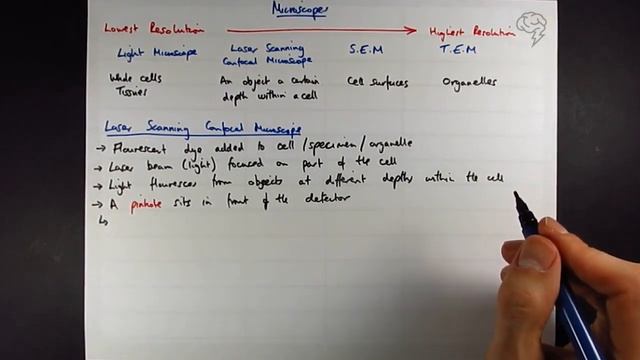 Microscopes
Lowest Resolution → Highest Resolution
Light Microscope Laser Scanning S.E.M T.E.M
Confocal Microscope
Whole cells An object a certain Cell surfaces Organelles
Tissues depth within a cell
Laser Scanning Confocal Microscope
→ Flourescent dye added to cell/specimen/organelle
→ Laser beam (light) focused on part of the cell
→ Light flouresces from objects at different depths within the cell
→ A pinhole sits in front of the detector
↳